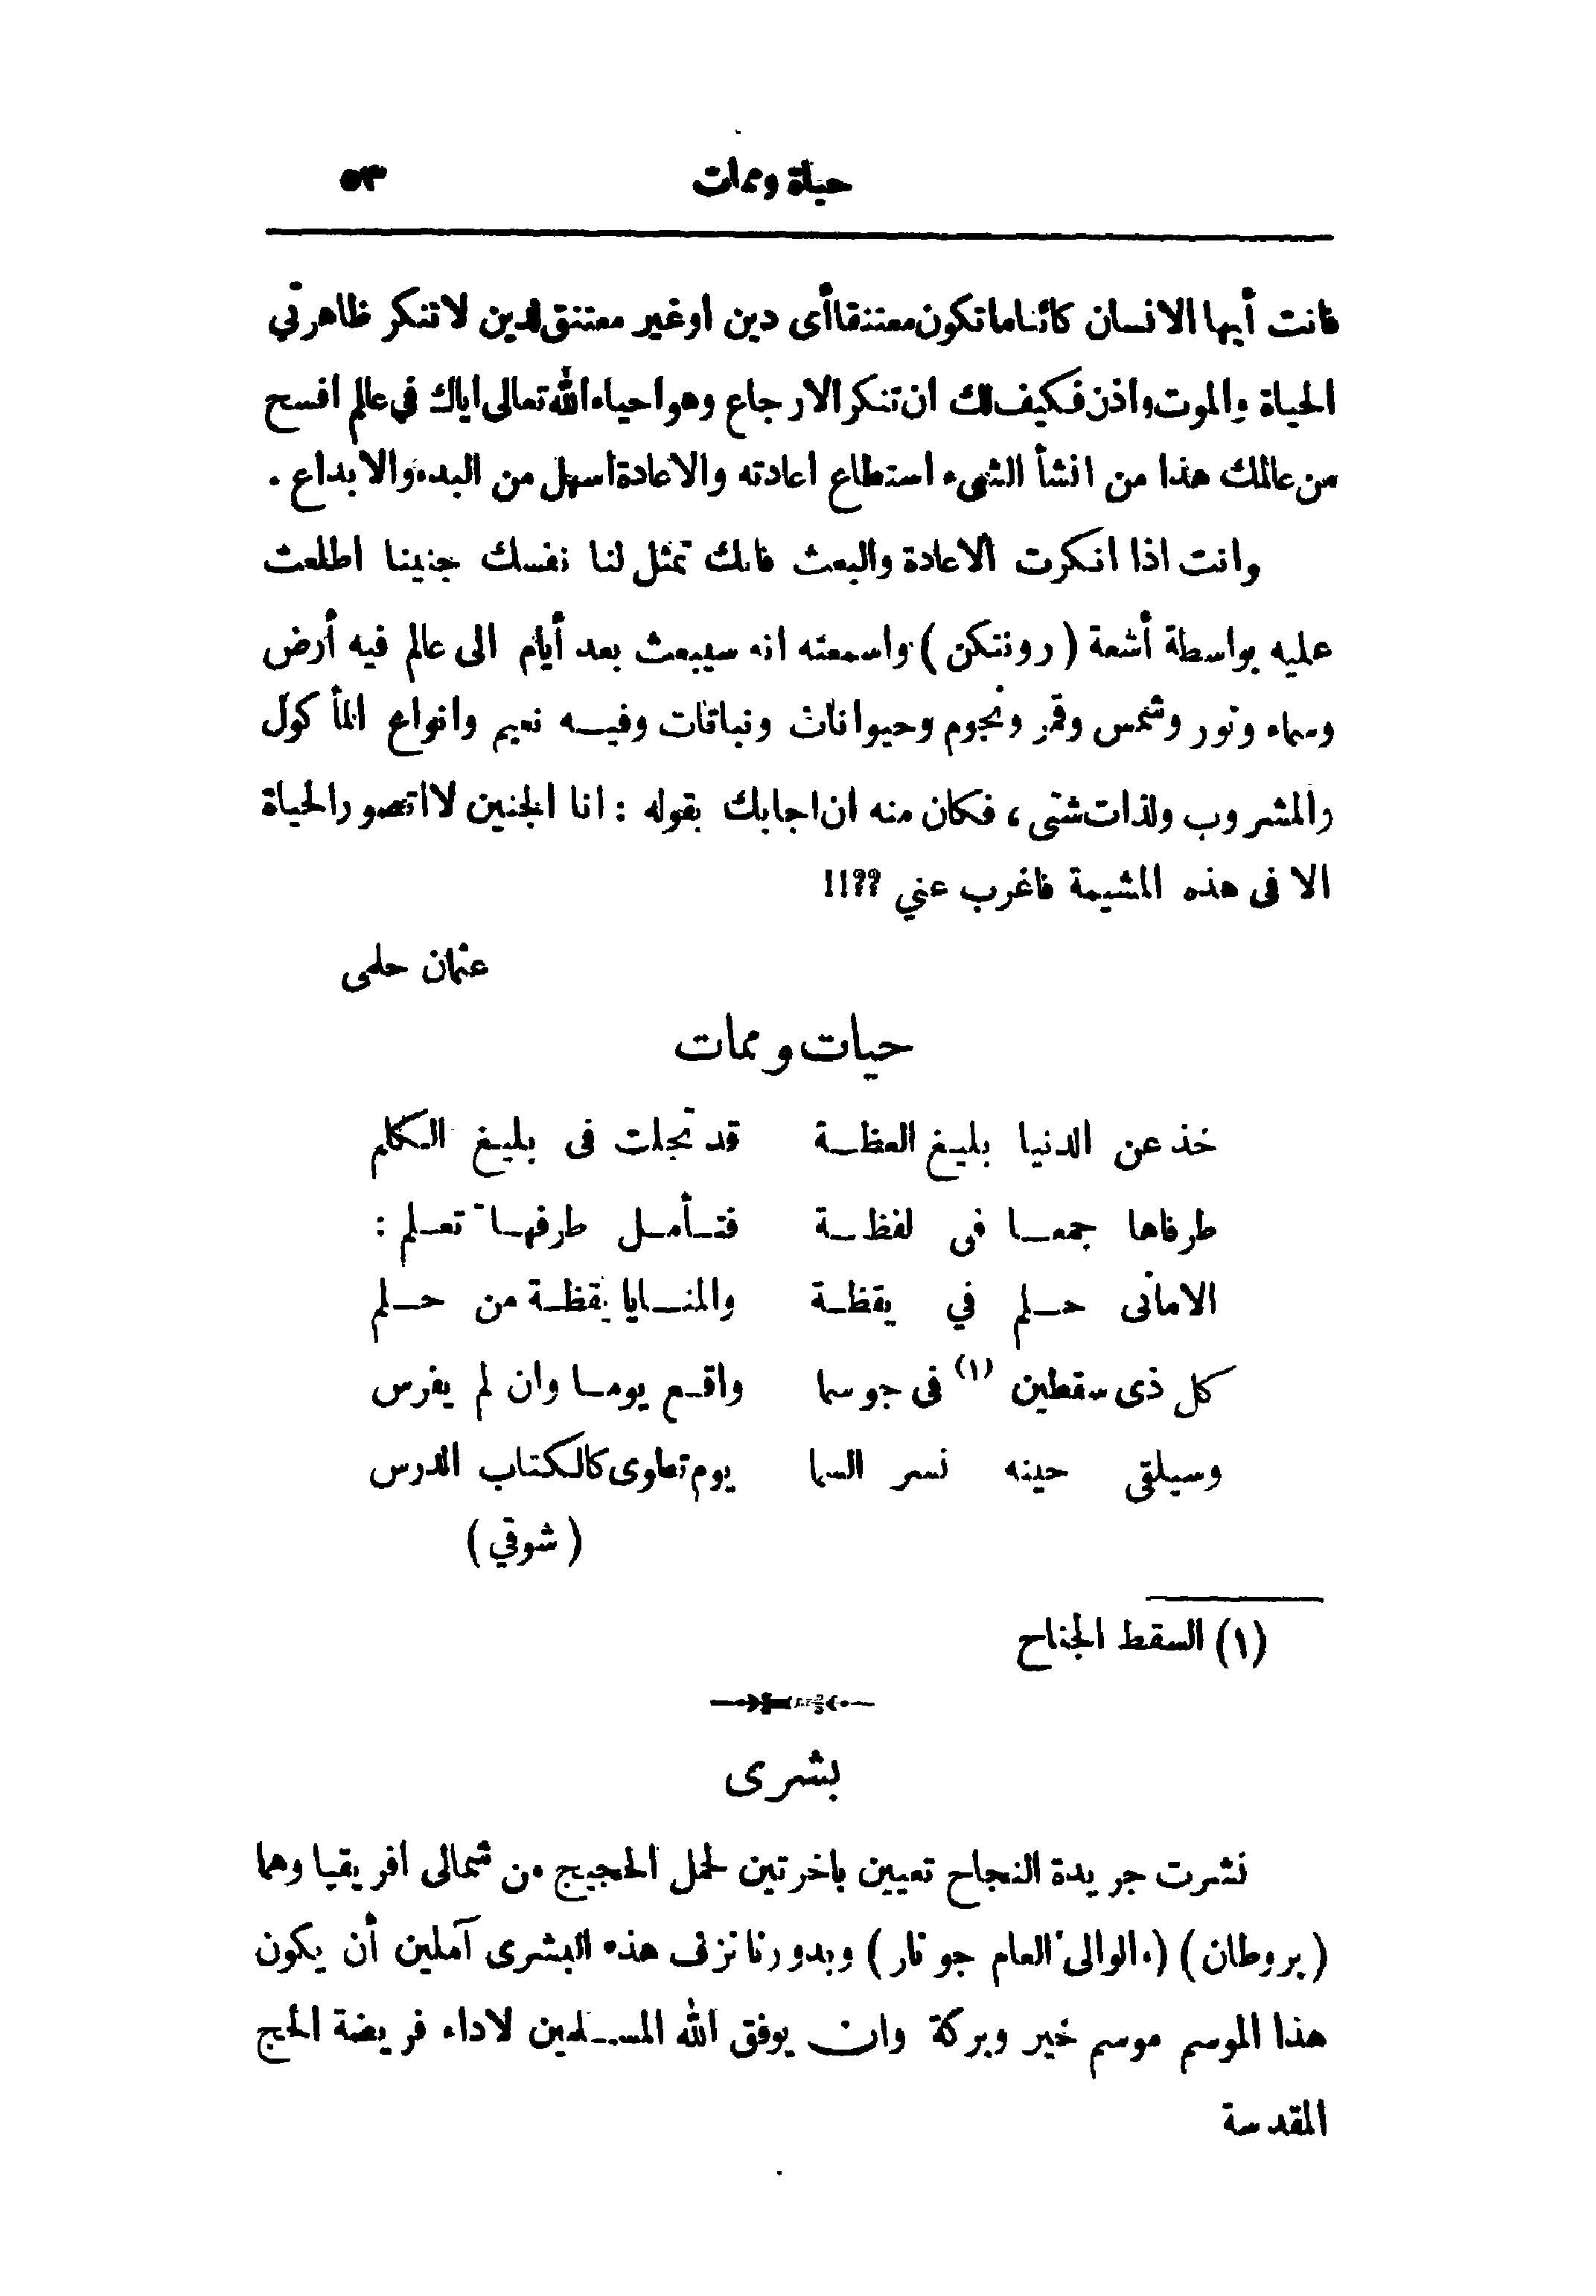 حياة وممات ٥٣
فانت أيها الانسان كائناماتكون معتنقا أى دين اوغير معتنق لدين لاتنكر ظاهرتي
الحياة والموت واذن فكيف لك ان تنكر الارجاع وهواحياء الله تعالى اياك في عالم افسح
من عالمك هذا من انشأ الشىء استطاع اعادته والاعادة اسهل من البدء والابداع .
وانت اذا انكرت الاعادة والبعث فانك تمثل لنا نفسك جنينا اطلعت
عليه بواسطة أشعة ( رونتكن ) واسمعته انه سيبعث بعد أيام الى عالم فيه أرض
وسماء ونور وشمس وقمر ونجوم وحيوانات ونباتات وفيه نعيم وانواع المأكول
والمشروب ولذات شتى ، فكان منه ان اجابك بقوله : انا الجنين لااتصور الحياة
الا فى هذه المشيمة فاغرب عني ??!!
عثمان حلمى
حيات وممات
خذ عن الدنيا بليغ العظة قد تجلت فى بليغ الكلم
طرفاها جمعا فى لفظة فتأمل طرفها تعلم :
الامانى حلم في يقظة والمنايا يقظة من حلم
كل ذى سقطين (١) فى جو سما واقع يوما وان لم يغرس
وسيلقى حينه نسر السما يوم تطوى كالكتاب الدرس
( شوقي )
(١) السقط الجناح
بشرى
نشرت جريدة النجاح تعيين باخرتين لحمل الحجيج من شمالى افريقيا وهما
( بروطان ) ( الوالى العام جونار ) وبدورنا نزف هذه البشرى آملين أن يكون
هذا الموسم موسم خير وبركة وان يوفق الله المسلمين لاداء فريضة الحج
المقدسة